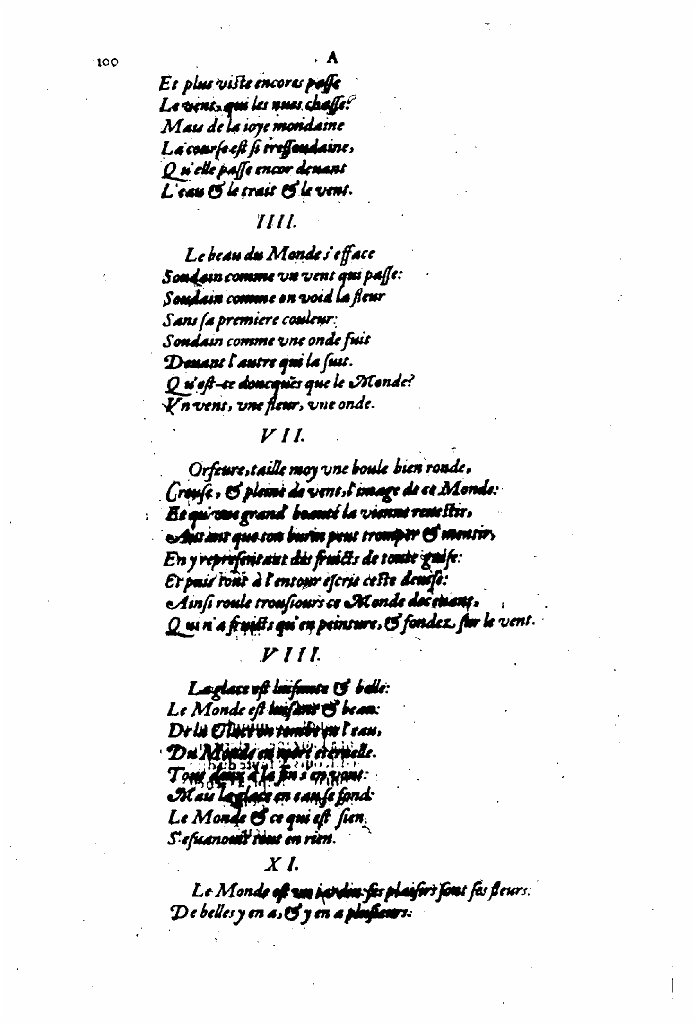 100 A
Et plus viste encores passe
Le vent, qui les nues chasse?
Mais de la ioye mondaine
La course est si tressoudaine,
Qu'elle passe encor deuant
L'eau & le trait & le vent.
IIII.
Le beau du Monde s'efface
Soudain comme vn vent qui passe:
Soudain comme on void la fleur
Sans sa premiere couleur:
Soudain comme vne onde fuit
Deuant l'autre qui la suit.
Qu'est-ce doncques que le Monde?
Vn vent, vne fleur, vne onde.
VII.
Orfeure, taille moy vne boule bien ronde,
Creuse, & pleine de vent, l'image de ce Monde:
Et qu'vne grand' beauté la vienne reuestir,
Autant que ton burin peut tromper & mentir,
En y representant des fruicts de toute guise:
Et puis tout à l'entour escris ceste deuise:
Ainsi roule tousiours ce Monde deceuant,
Qui n'a fruicts qu'en peinture, & fondez sur le vent.
VIII.
La glace est luisante & belle:
Le Monde est luisant & beau:
De la Glace on tombe en l'eau,
Du Monde en mort eternelle.
Tous deux à la fin s'en vont:
Mais la glace en eau se fond:
Le Monde & ce qui est sien
S'esuanouit tout en rien.
XI.
Le Monde est vn iardin: ses plaisirs sont ses fleurs:
De belles y en a, & y en a plusieurs: